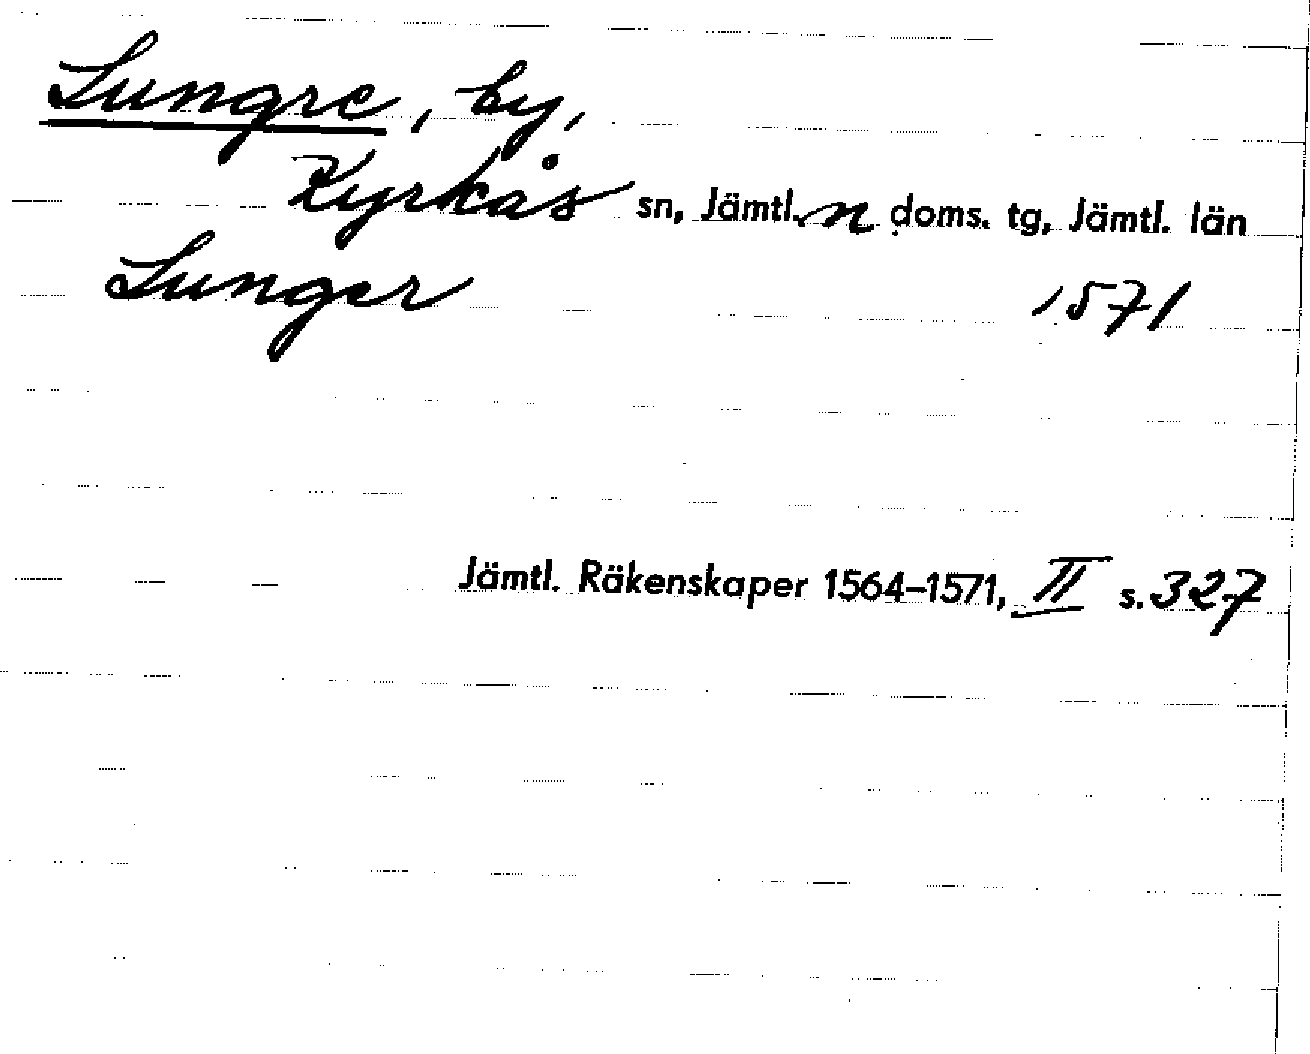 Lungre, by,
Kyrkås sn, Jämtl. n doms. tg, Jämtl. län
Lunger 1571
Jämtl. Räkenskaper 1564–1571, II s. 327